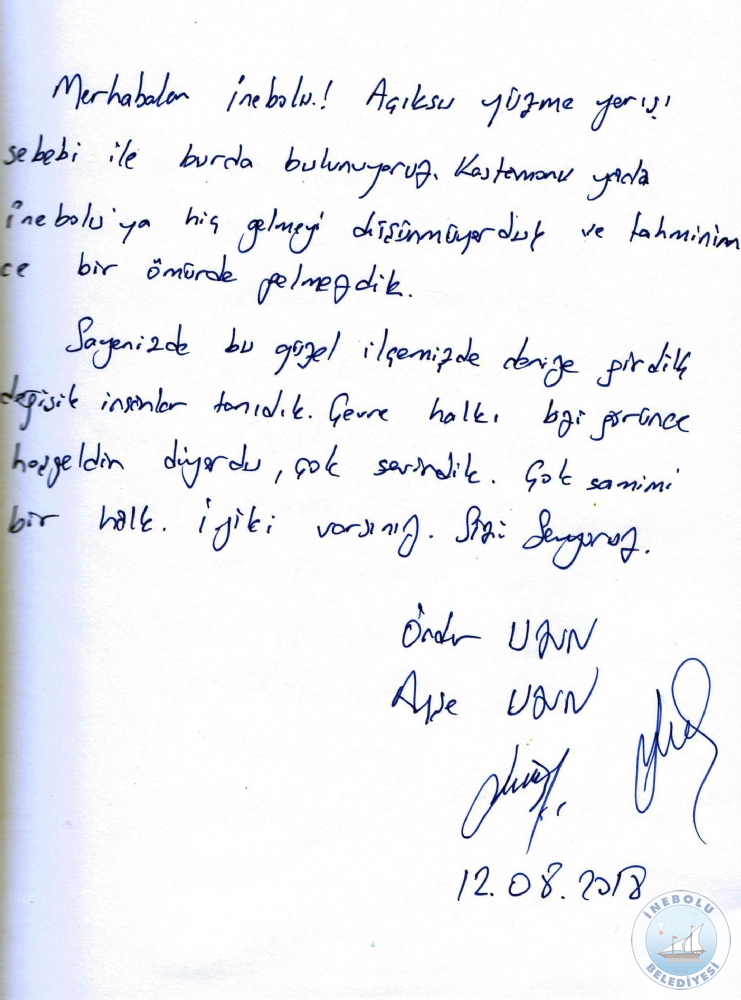 Merhabalar İnebolu.! Açıksu yüzme yarışı
sebebi ile burda bulunuyoruz. Kastamonu yada
İnebolu'ya hiç gelmeyi düşünmüyorduk ve tahminim
ce bir ömürde gelmezdik.
Sayenizde bu güzel ilçemizde denize girdik
değişik insanlar tanıdık. Çevre halkı bizi görünce
hoşgeldin diyordu, çok sevindik. Çok samimi
bir halk. İyiki varsınız. Sizi Seviyoruz.
Önder UZUN
Ayşe UZUN
12.08.2018
İNEBOLU
BELEDİYESİ